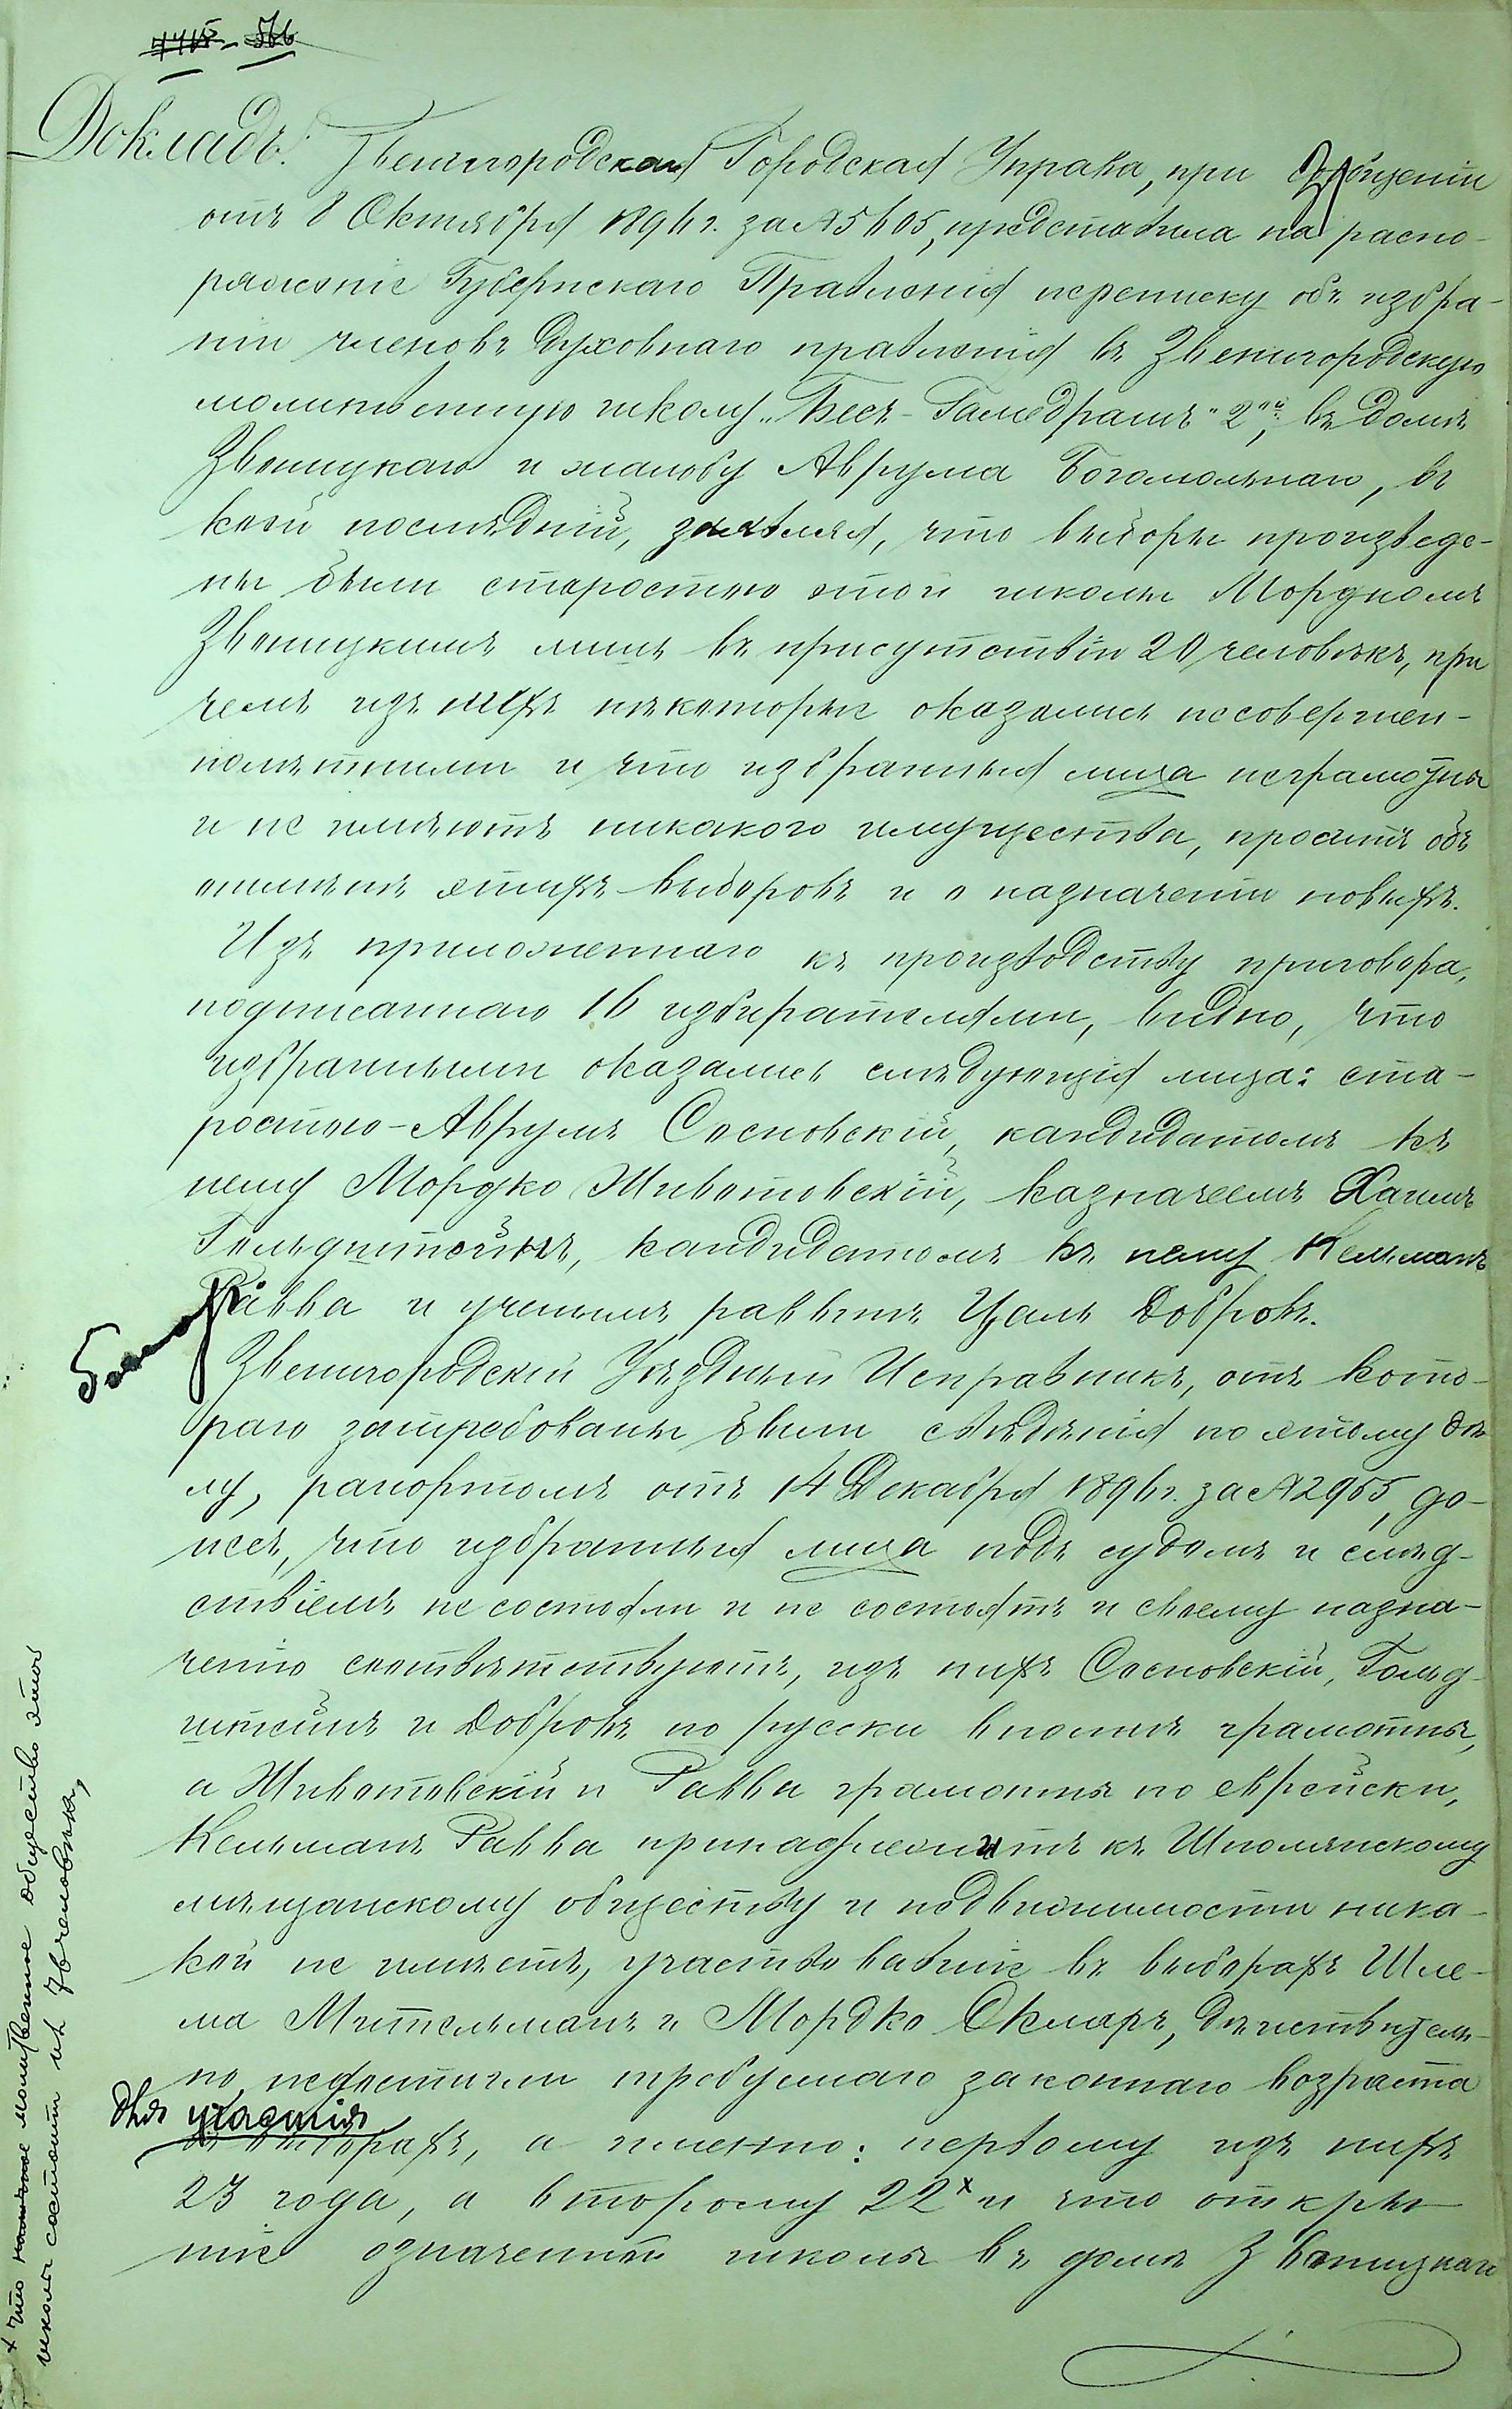 Докладъ. Звенигородская Городская Управа, при сообщеніи
отъ 8 Октября 1896 г. за №5605, представила на распо-
ряженіе Губернскаго Правленія переписку объ избра-
ніи членовъ духовнаго правленія въ Звенигородскую
молитвенную школу „Бесъ-Гамедрашъ" 2ую, въ домѣ
Звеницкаго и жалобу Аврума Богомольнаго, въ
коей послѣдній, заявляя, что выборы произведе-
ны были старостою этой школы Мордкомъ
Звеницкимъ лишь въ присутствіи 20 человѣкъ, при
чемъ изъ нихъ нѣкоторые оказались несовершен-
нолѣтними и что избранныя лица неграмотны
и не имѣютъ никакого имущества, проситъ объ
отмѣнѣ этихъ выборовъ и о назначеніи новыхъ.
Изъ приложеннаго къ производству приговора,
подписаннаго 16 избирателями, видно, что
избранными оказались слѣдующія лица: ста-
ростою - Аврумъ Сосновскій, кандидатомъ къ
нему Мордко Животовскій, казначеемъ Хаимъ
Гольдштейнъ, кандидатомъ къ нему Кельманъ
Равва и ученымъ раввинъ Цаль Добровъ.
Звенигородскій Уѣздный Исправникъ, отъ кото-
раго затребованы были свѣдѣнія по этому дѣ
лу, рапортомъ отъ 14 Декабря 1896 г. за №2955, до-
несъ, что избранныя лица подъ судомъ и слѣд-
ствіемъ не состояли и не состоятъ и своему назна-
ченію соотвѣтствуютъ, изъ нихъ Сосновскій, Гольд-
штейнъ и Добровъ по русски вполнѣ грамотны,
а Животовскій и Равва грамотны по еврейски,
Кельманъ Равва принадлежитъ къ Шполянскому
мѣщанскому обществу и недвижимости ника-
кой не имѣетъ, участвовавшіе въ выборахъ Шле-
ма Мительманъ и Мордко Скляръ, дѣйствитель-
но, недостигли требуемаго законнаго возраста
для участія
въ выборахъ, а именно: первому изъ нихъ
23 года, а второму 22 х и что откры-
тіе означенной школы въ домѣ Звеницкаго
х что молитвенное общество этой
школы состоитъ изъ человѣкъ,